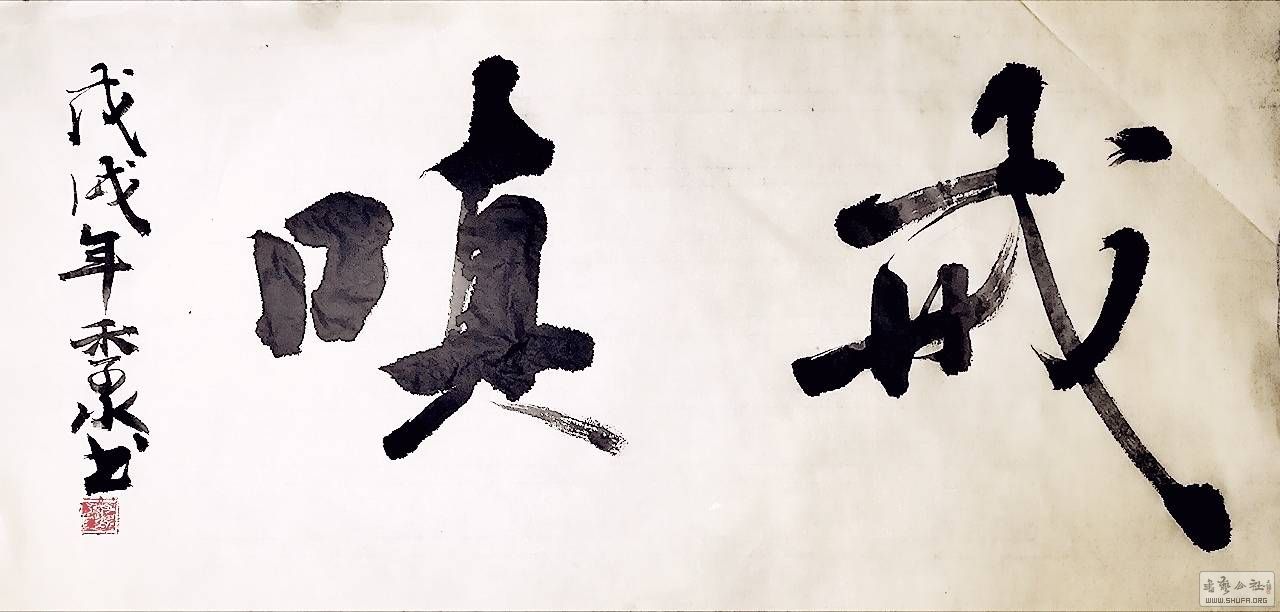 戒嗔
戊戌年秀泉书
書藝公社
WWW.SHUFA.ORG